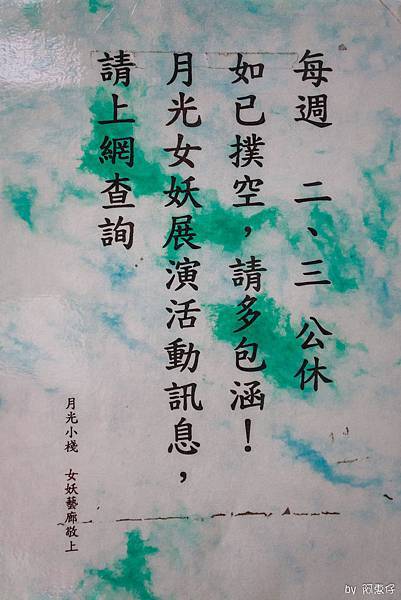 每週 二、三 公休
如已撲空，請多包涵！
月光女妖展演活動訊息，
請上網查詢
月光小棧 女妖藝廊敬上
by 阿惠仔